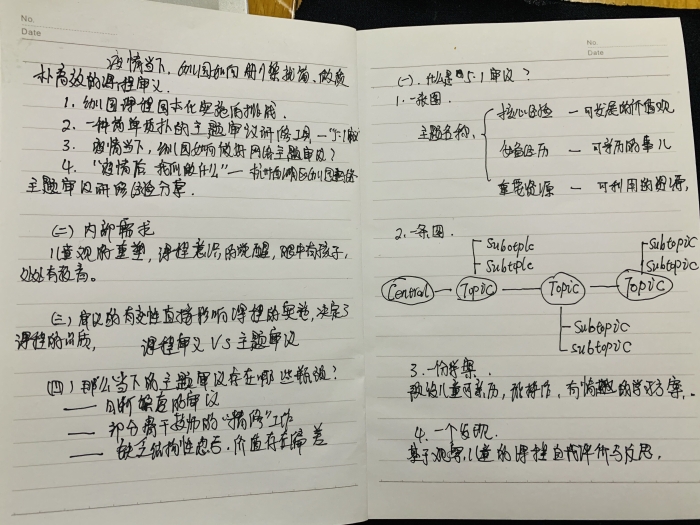 No.
Date
疫情当下,幼儿园如何删繁就简、做质
朴高效的课程审议
1. 幼儿园课程园本化实施的挑战.
2. 一种简单质朴的主题审议研修工具—"5·1审议
3. 疫情当下,幼儿园如何做好网络主题审议?
4. "疫情后 我们做什么"— 幼儿园
主题审议研修经验分享.
(二) 内部需求
儿童观的重塑,课程意识的唤醒,眼中有孩子,
处处有教育。
(三) 审议的有效性直接影响课程的实施,决定了
课程的品质, 课程审议 VS 主题审议
(四) 那么当下的主题审议存在哪些瓶颈?
— 的审议
— 部分骨干教师的"精修"工作
— 缺乏结构性思考、价值存在偏差
No.
Date
(一). 什么是5·1审议?
1. 一张图.
主题名称.
核心经验 — 可发展的价值观
体验经历 — 可亲历的事儿
重要资源 — 可利用的资源,
2. 一条图.
Subotplc
Subtplc
Subtopic
Subtopic
Central
Topic
Topic
Topic
Subtopic
subtopic
3. 一份学案.
预设儿童可亲历,能操作,有情趣的学习方案.
4. 一个发现.
基于观察,儿童的课程自我评价与反思,